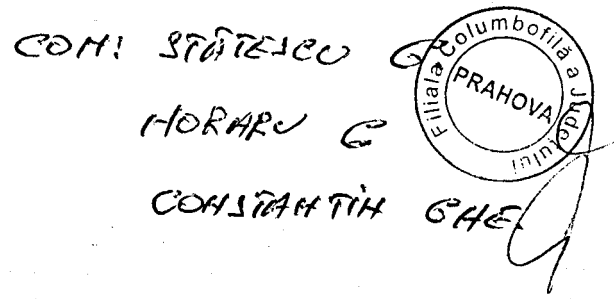 COM: STĂTESCU G
HORARU C
CONSTANTIN GHE.
Filiala Columbofilă a Județului
PRAHOVA